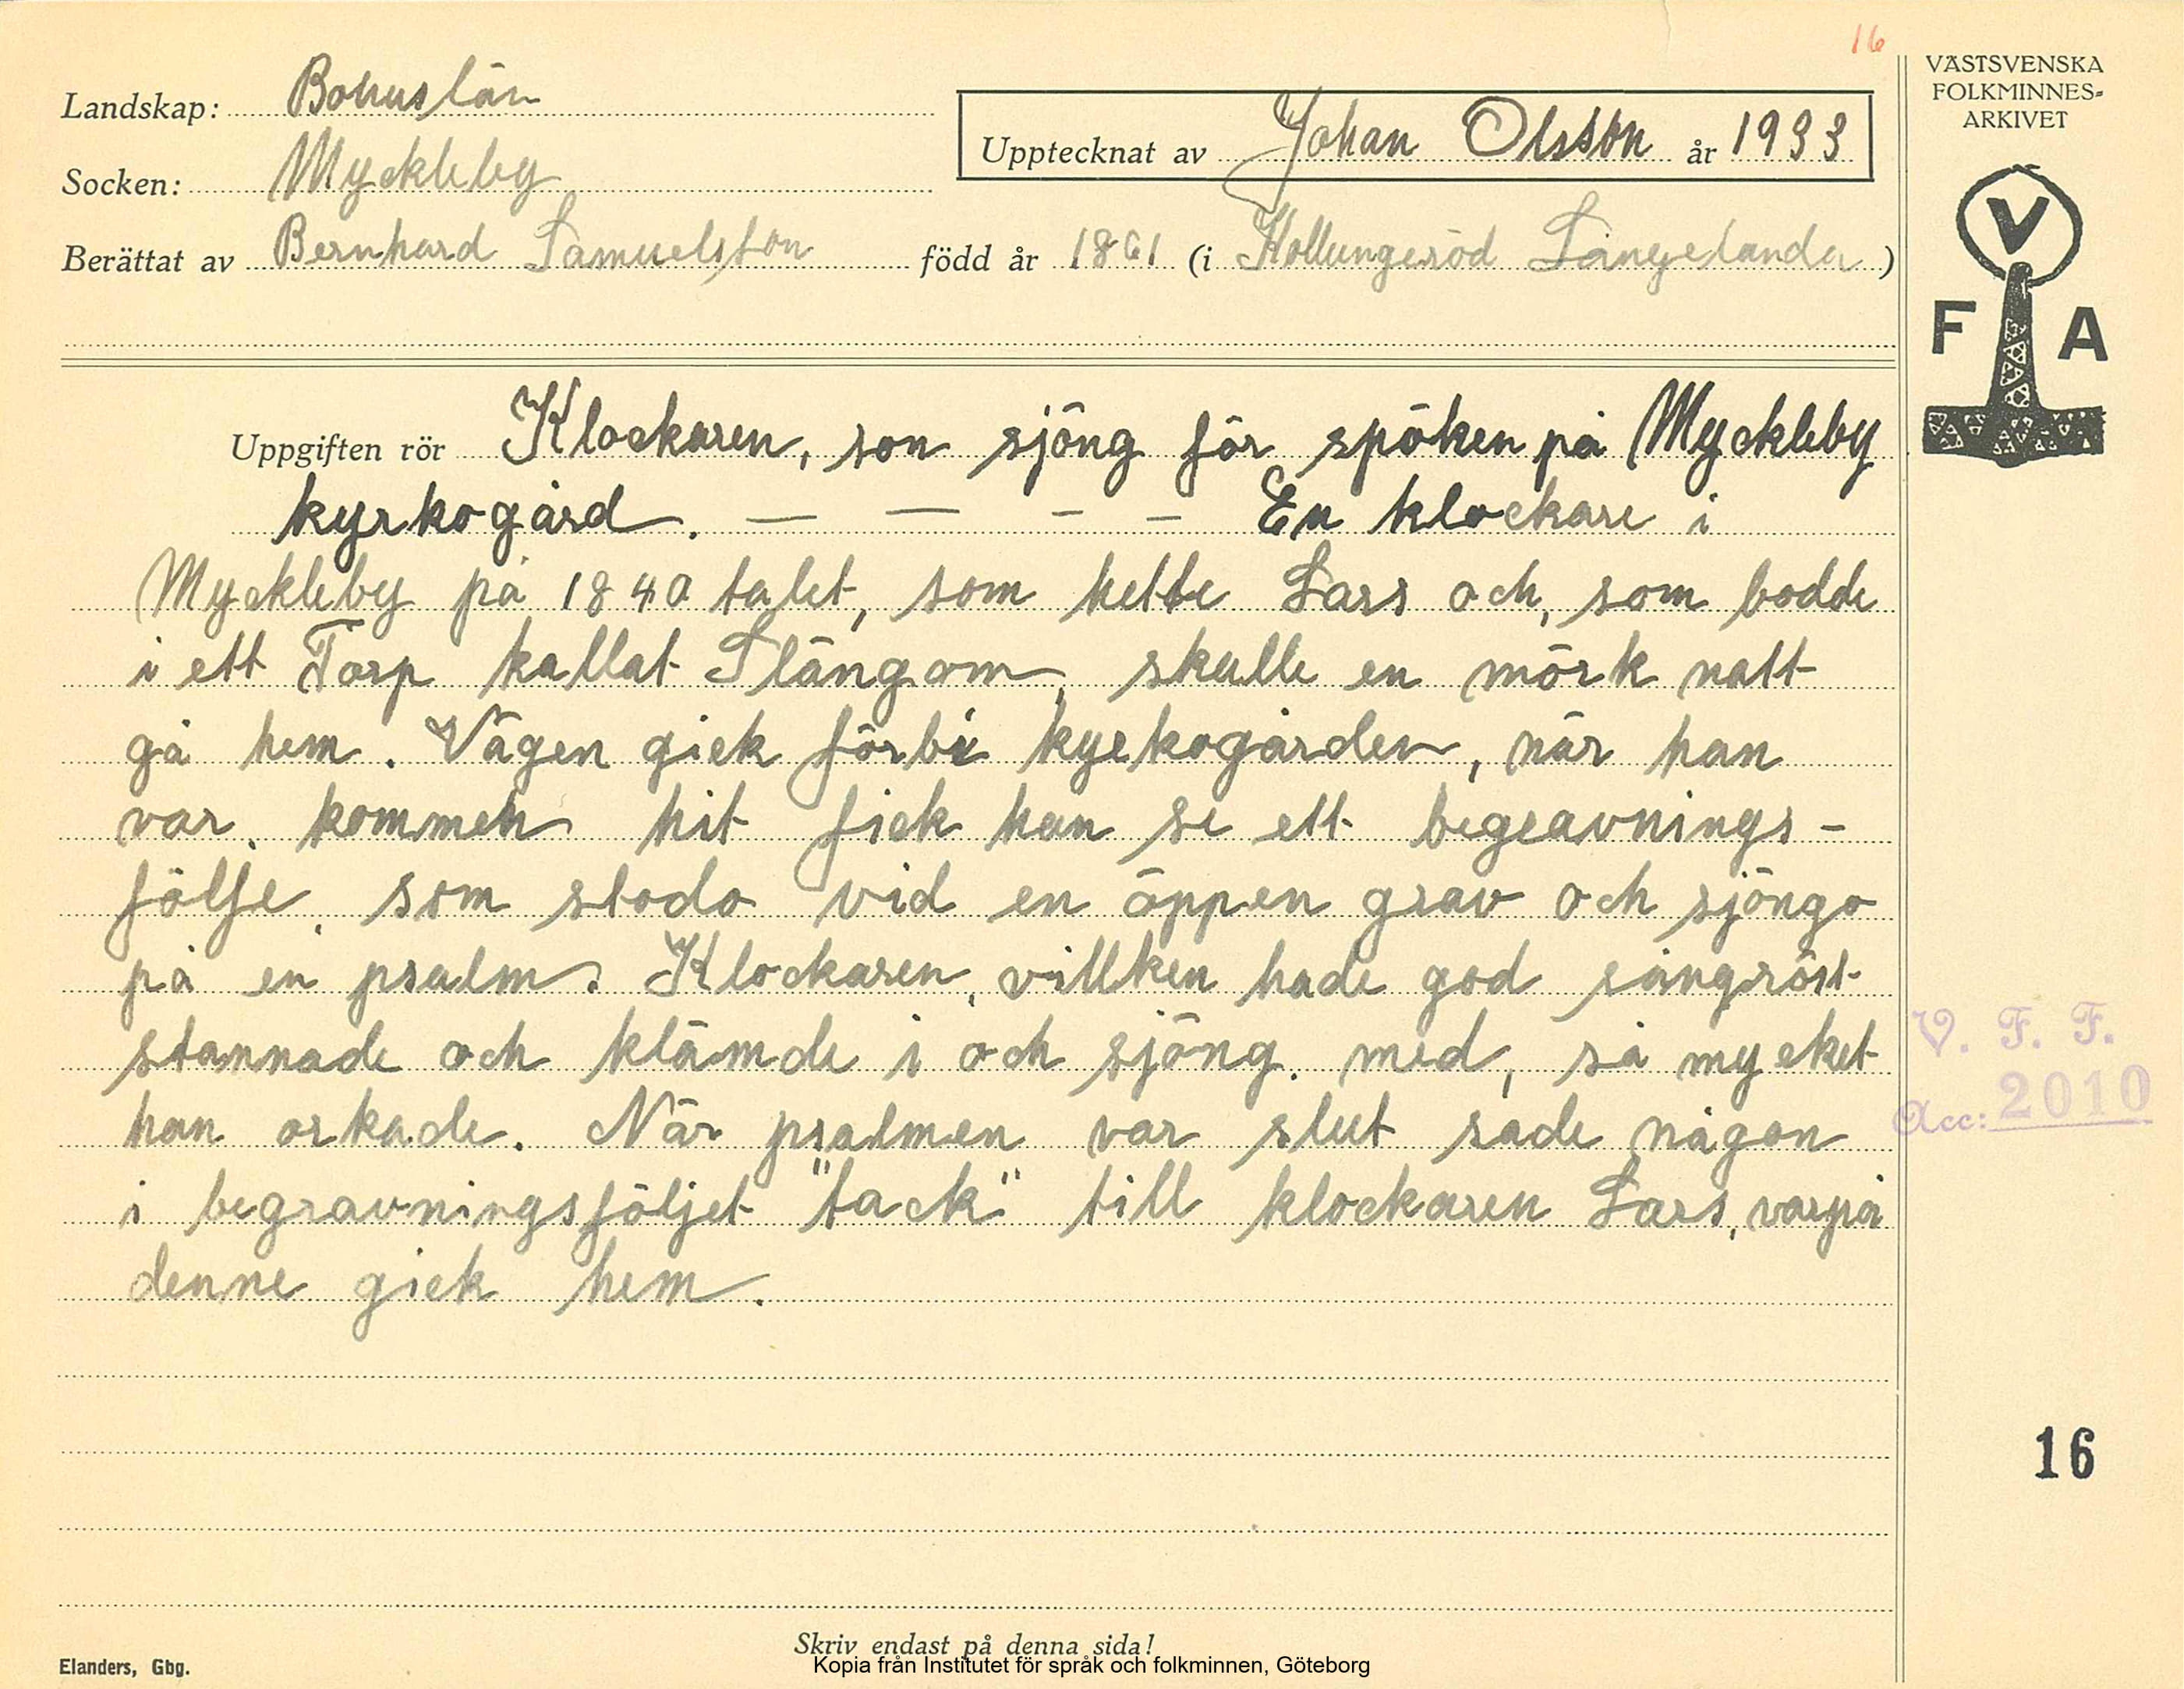 16
Landskap: Bohuslän
Socken: Myckleby
Upptecknat av Johan Olsson år 1933
Berättat av Bernhard Samuelsson född år 1861 (i Kollungeröd Långelanda)
VÄSTSVENSKA
FOLKMINNES-
ARKIVET
V
F A
Uppgiften rör Klockaren, son sjöng för spöken på Myckleby
kyrkogård. — — – – En klockare i
Myckleby på 1840 talet, som hette Lars och, som bodde
i ett Torp kallat Slängom, skulle en mörk natt
gå hem. Vägen gick förbi kyrkogården, när han
var kommen hit fick han se ett begravnings-
följe, som stodo vid en öppen grav och sjöngo
på en psalm. Klockaren, villken hade god sångröst
stannade och klämde i och sjöng med, så mycket
han orkade. När psalmen var slut sade någon
i begravningsföljet "tack" till klockaren Lars, varpå
denne gick hem.
V. F. F.
Acc: 2010
16
Skriv endast på denna sida!
Elanders, Gbg.
Kopia från Institutet för språk och folkminnen, Göteborg